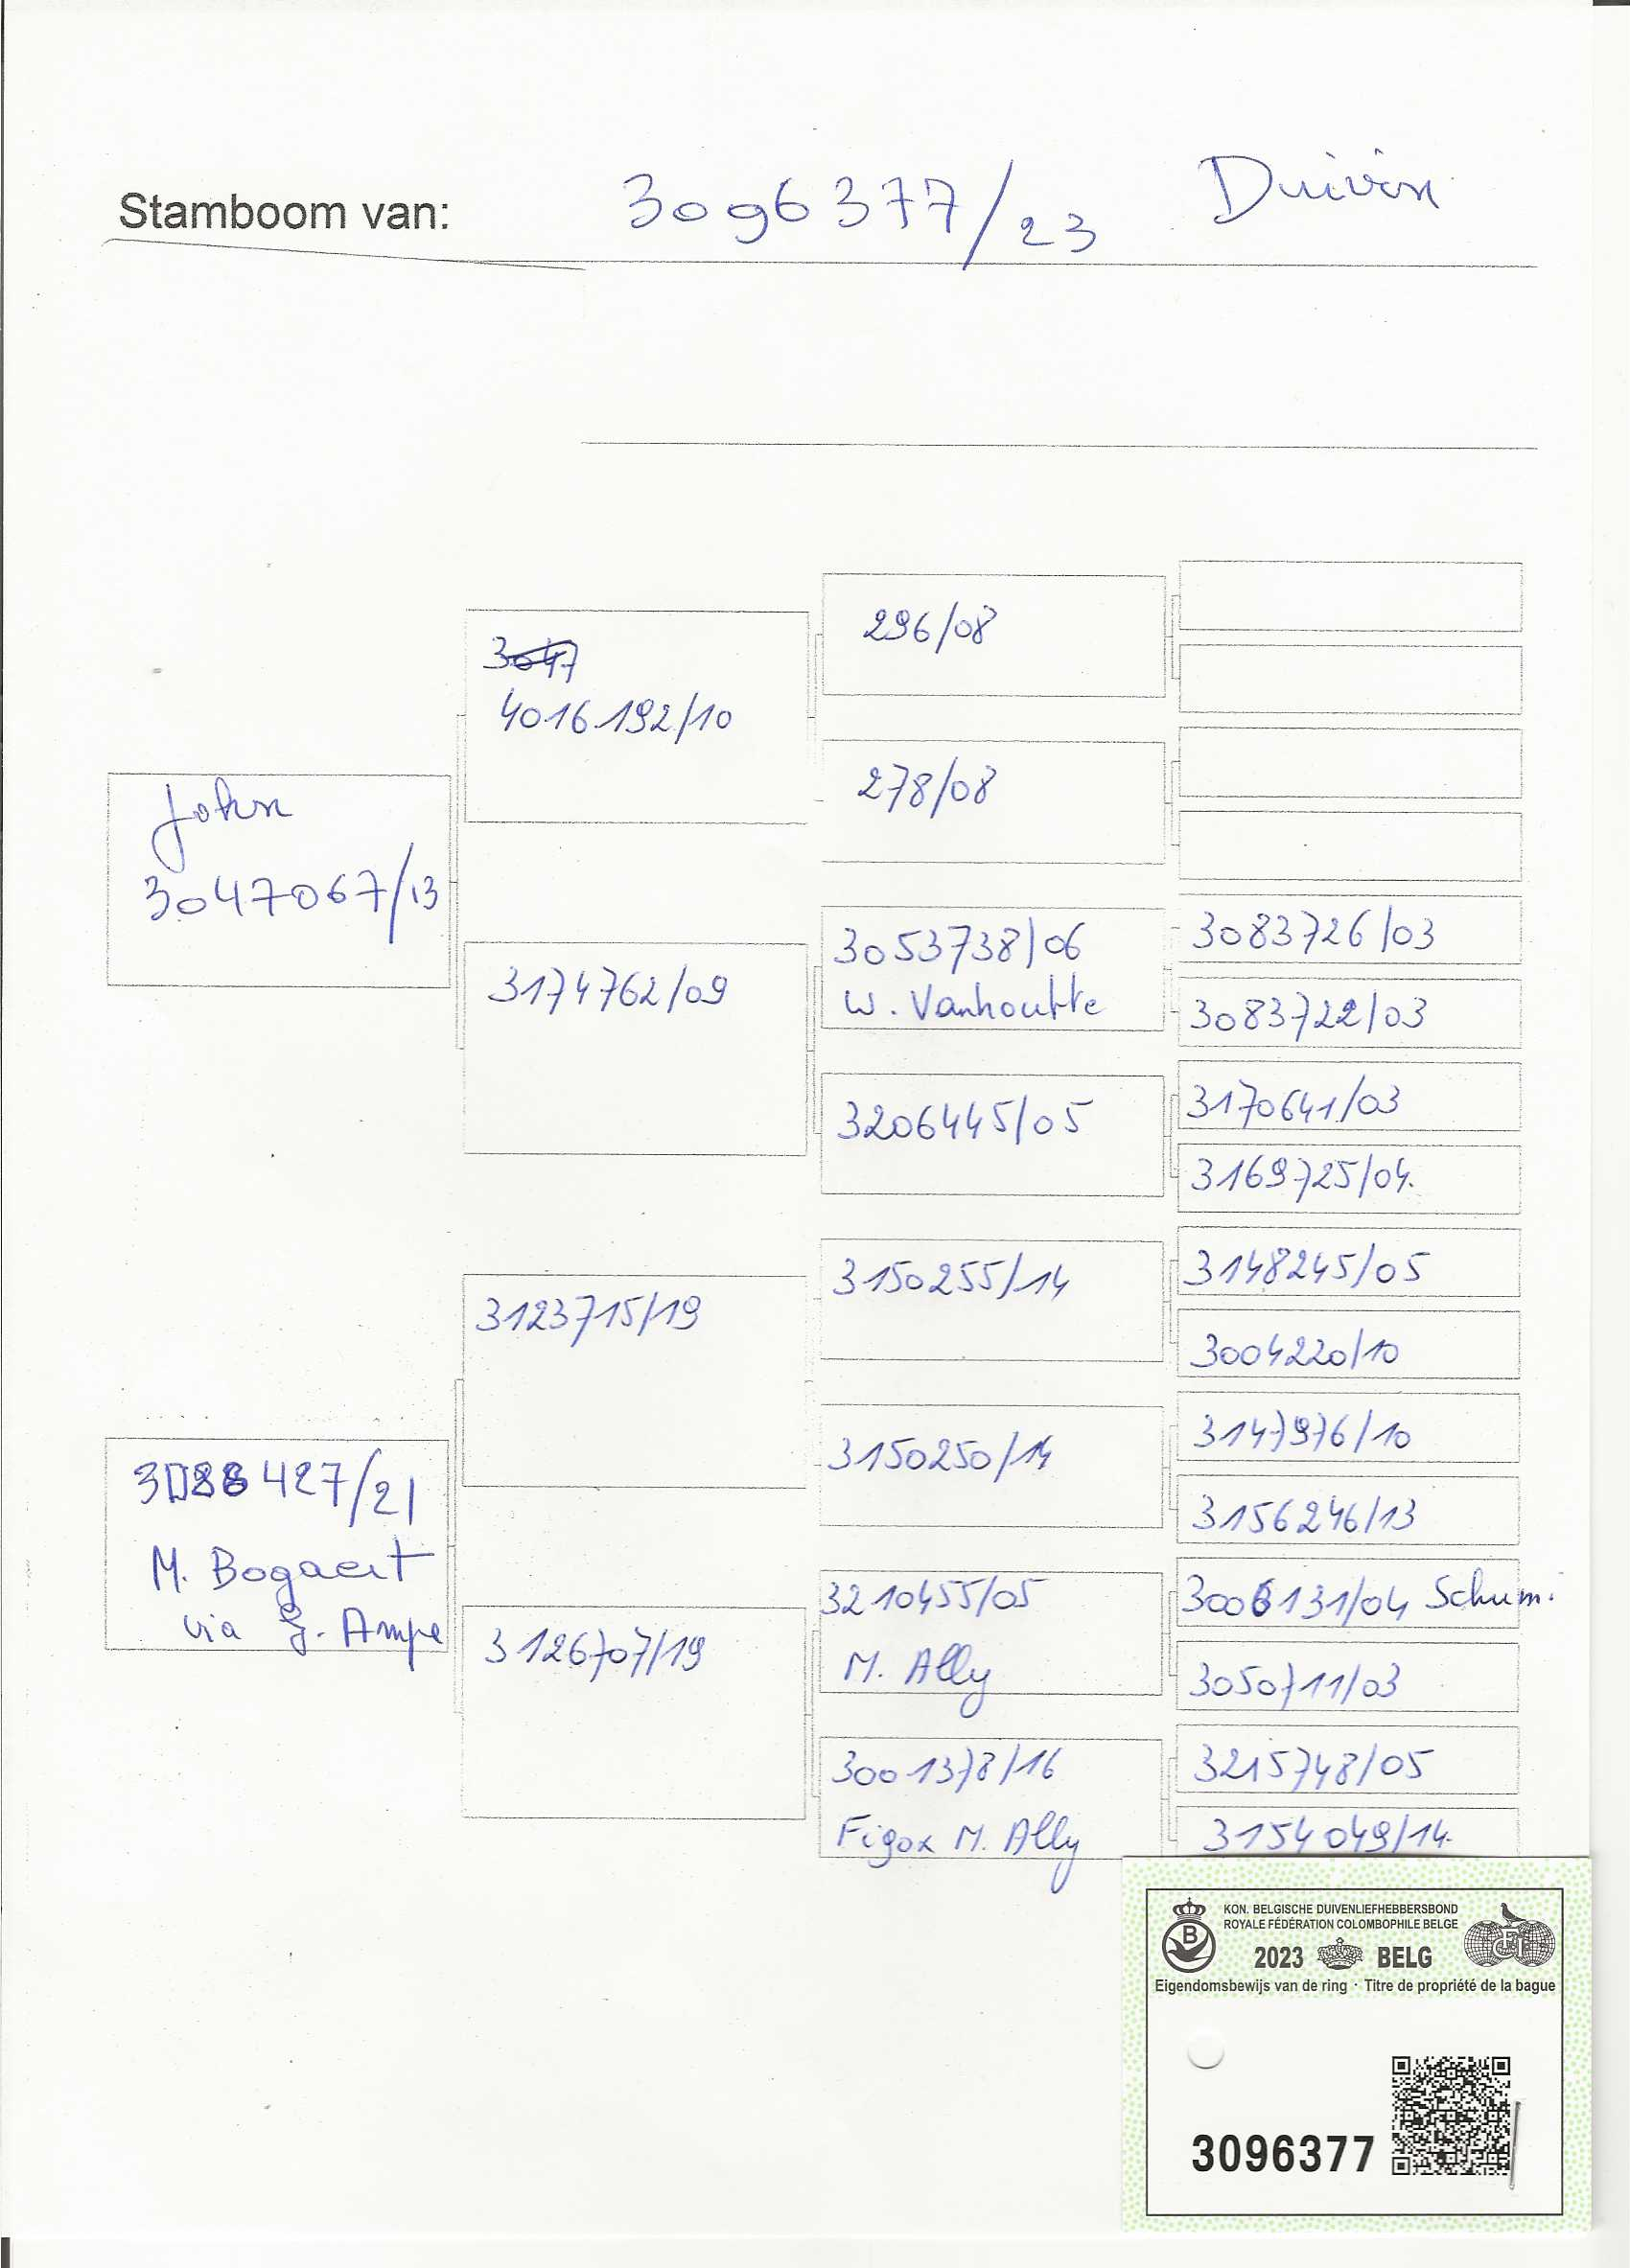 Stamboom van: 3096377/23 Duivin
296/08
4016192/10
278/08
John
3047067/13
3053738/06
W. Vanhoutte
3083726/03
3083722/03
3174762/09
3206445/05
3170641/03
3169725/04.
3150255/14
3148245/05
3004220/10
3123715/19
3150250/14
3147976/10
3156246/13
427/21
M. Bogaert
via G. Ampe
3210455/05
M. Ally
3006131/04 Schum.
3050711/03
3126707/19
3001378/16
Figox M. Ally
3215748/05
3154049/14.
KON. BELGISCHE DUIVENLIEFHEBBERSBOND
ROYALE FÉDÉRATION COLOMBOPHILE BELGE
2023 BELG
Eigendomsbewijs van de ring · Titre de propriété de la bague
3096377